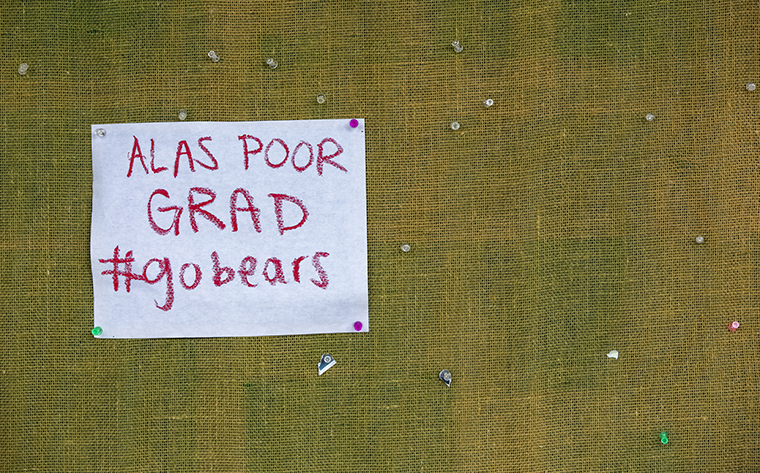 ALAS POOR
GRAD
#gobears